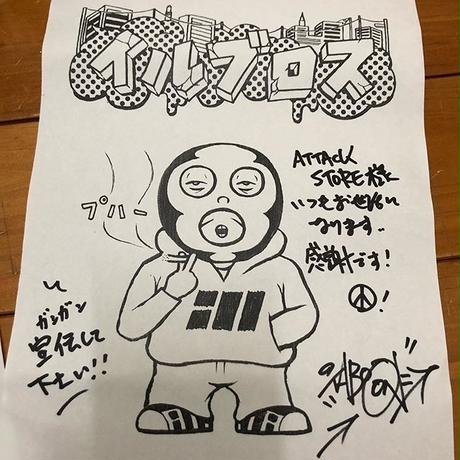 イルブロス
ATTACK
STORE様
いつもお世話に
なります。
感謝です!
プハー
ill
ガンガン
宣伝して
下さい!!